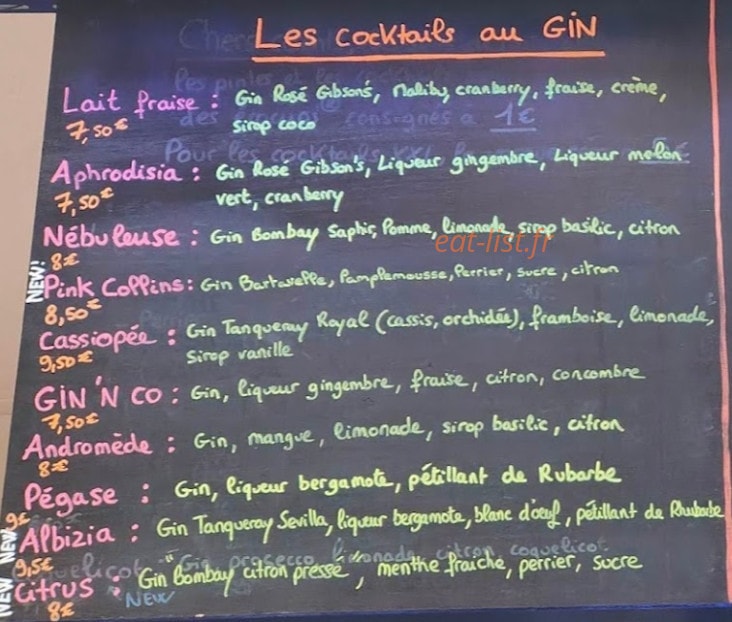 Les cocktails au GIN
Lait fraise : Gin Rosé Gibson's, Malibu, cranberry, fraise, crème,
7,50€ sirop coco
Aphrodisia : Gin Rosé Gibson's, Liqueur gingembre, Liqueur melon
7,50€ vert, cranberry
Nébuleuse : Gin Bombay Saphir, Pomme, limonade, sirop basilic, citron
eat-list.fr
8€
NEW! Pink Collins : Gin Bartavelle, Pamplemousse, Perrier, sucre, citron
8,50€
Cassiopée : Gin Tanqueray Royal (cassis, orchidée), framboise, limonade,
9,50€ sirop vanille
GIN'N CO : Gin, liqueur gingembre, fraise, citron, concombre
7,50€
Andromède : Gin, mangue, limonade, sirop basilic, citron
8€
Pégase : Gin, liqueur bergamote, pétillant de Rubarbe
9€
NEW Albizia : Gin Tanqueray Sevilla, liqueur bergamote, blanc d'oeuf, pétillant de Rhubarbe
9,5€
NEW Citrus : Gin Bombay "citron pressé", menthe fraîche, perrier, sucre
8€ NEW